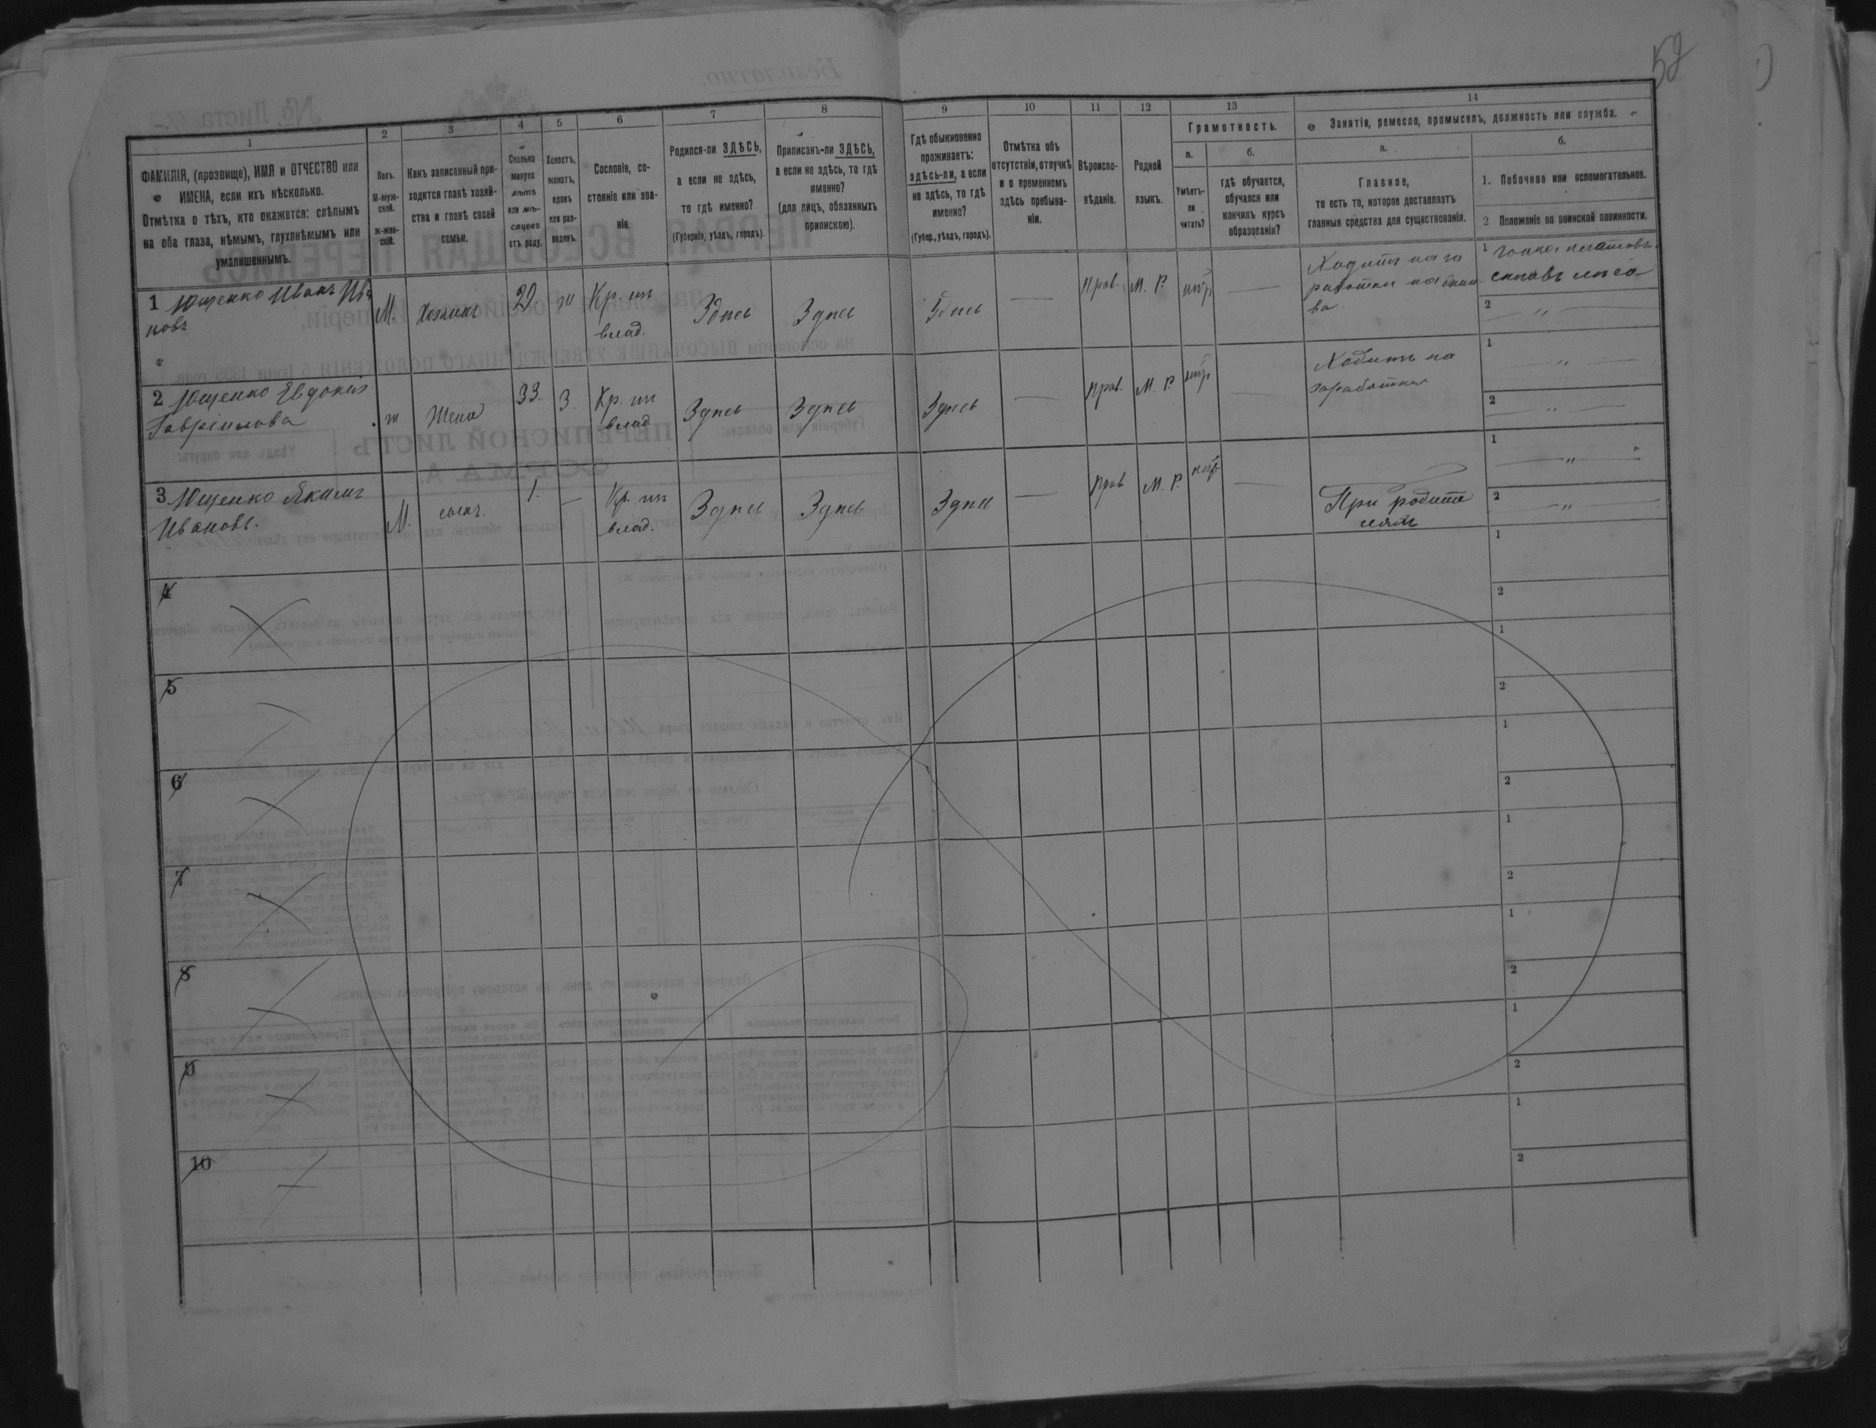 52
1
2
3
4
5
6
7
8
9
10
11
12
13
14
ФАМИЛІЯ, (прозвище), ИМЯ и ОТЧЕСТВО или
ИМЕНА, если ихъ нѣсколько.
Отмѣтка о тѣхъ, кто окажется: слѣпымъ
на оба глаза, нѣмымъ, глухонѣмымъ или
умалишеннымъ.
Полъ.
М-муж-
ской.
Ж-жен-
скій.
Какъ записанный при-
ходится главѣ хозяй-
ства и главѣ своей
семьи.
Сколько
минуло
лѣтъ
или мѣ-
сяцевъ
отъ роду.
Холостъ,
женатъ,
вдовъ
или раз-
веденъ.
Сословіе, со-
стояніе или зва-
ніе.
Родился-ли ЗДѢСЬ,
а если не здѣсь,
то гдѣ именно?
(Губернія, уѣздъ, городъ).
Приписанъ-ли ЗДѢСЬ,
а если не здѣсь, то гдѣ
именно?
(для лицъ, обязанныхъ
припискою).
Гдѣ обыкновенно
проживаетъ:
здѣсь-ли, а если
не здѣсь, то гдѣ
именно?
(Губер., уѣздъ, городъ).
Отмѣтка объ
отсутствіи, отлучкѣ
и о временномъ
здѣсь пребыва-
ніи.
Вѣроиспо-
вѣданіе.
Родной
языкъ.
Грамотность.
а.
Умѣетъ-
ли
читать?
б.
гдѣ обучается,
обучался или
кончилъ курсъ
образованія?
Занятія, ремесло, промыселъ, должность или служба.
а.
Главное,
то есть то, которое доставляетъ
главныя средства для существованія.
б.
1. Побочное или вспомогательное.
2 Положеніе по воинской повинности.
1 Ющенко Иванъ Ива
новъ
М.
Хозяинъ
29
ж
Кр. из
влад.
Здѣсь
Здѣсь
Здѣсь
—
Прав.
М. Р.
нѣтъ
—
Ходитъ на за
работки
1
сплавъ лѣса
2 — „ —
2 Ющенко Евдокія
Гавріилова
ж
Жена
33.
З.
Кр. из
влад
Здѣсь
Здѣсь
Здѣсь
—
Прав.
М. Р.
нѣтъ
—
Ходитъ на
заработки
1 — „ —
2 — „ —
3 Ющенко Якимъ
Ивановъ.
М.
сынъ.
1.
—
Кр. из
влад.
Здѣсь
Здѣсь
Здѣсь
—
Прав
М. Р.
нѣтъ
При родите
ляхъ
1 — „ —
2 — „ —
4
1
2
5
1
2
6
1
2
7
1
2
8
1
2
9
1
2
10
1
2